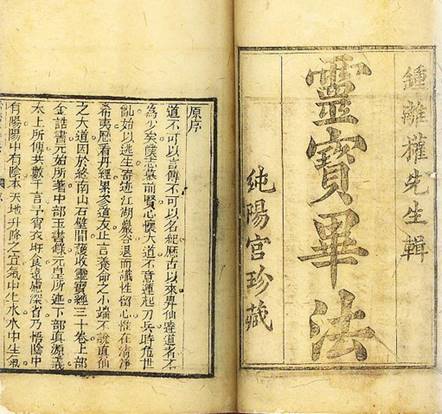 鍾離權先生輯
靈寶畢法
純陽宮珍藏
原序
道不可以言傳不可以名紀歷古以來昇仙達道者不
為少矣僕志慕前賢心懷大道不意運起刀兵時危世
亂始以逃生寄迹江湖巖谷退而識性留心惟在清淨
希夷歷看丹經累參道友止言養命之小端不說真仙
之大道因於終南山石壁間獲收靈寶經三十卷上部
金誥書元始所著中部玉書錄元皇所述下部真源義
太上所傳共數千言予宵衣旰食遠慮深省乃悟陰中
有陽陽中有陰本天地升降之宜氣中生水水中生氣